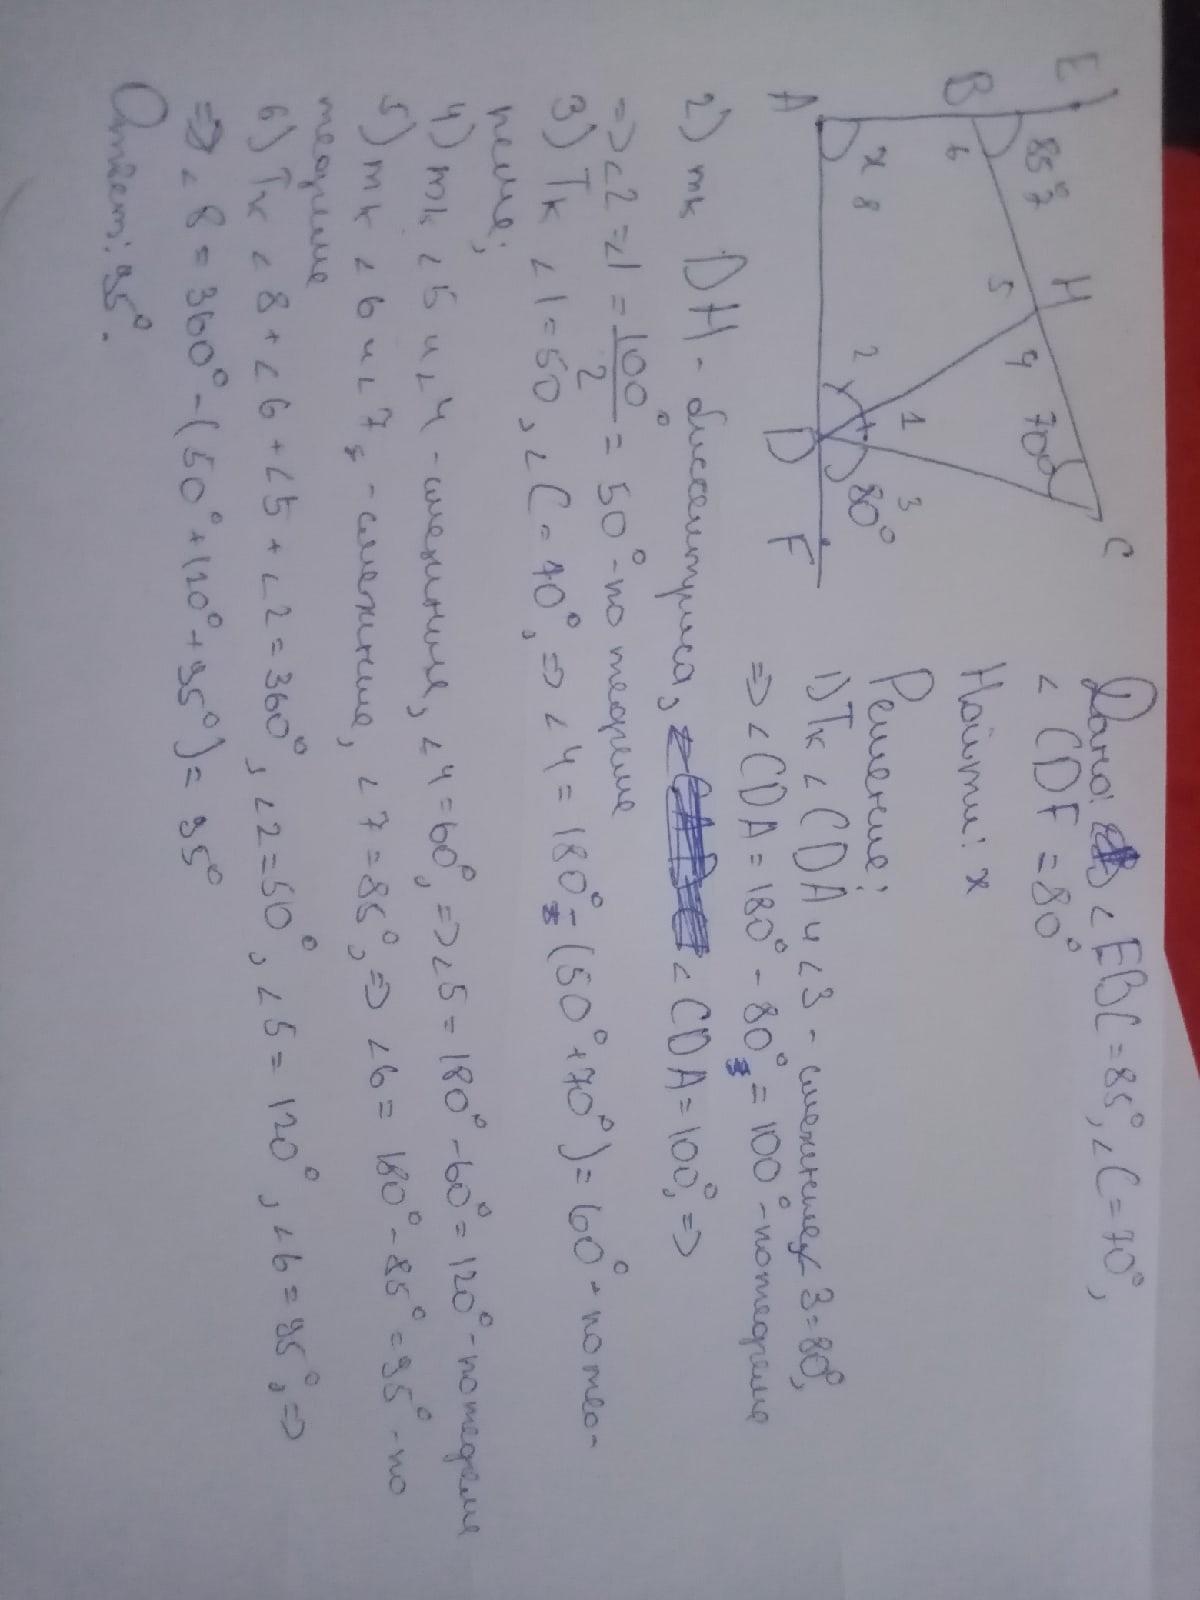 E
B
A
85° 7
x 8
6
H
5
4
70°
C
2
1
3
80°
D
F
Дано: ∠EBC = 85°, ∠C = 70°,
∠CDF = 80°
Найти: x
Решение:
1) Тк ∠CDA и ∠3 - смежные, 3 = 80°,
=> ∠CDA = 180° - 80° = 100° - по теореме
2) тк DH - биссектриса, ∠CDA = 100°, =>
=> ∠2 = ∠1 = 100°/2 = 50° - по теореме
3) Тк ∠1 = 50, ∠C = 70°, => ∠4 = 180° - (50° + 70°) = 60° - по тео-
реме;
4) тк ∠5 и ∠4 - смежные, ∠4 = 60°, => ∠5 = 180° - 60° = 120° - по теореме
5) тк ∠6 и ∠7 - смежные, ∠7 = 85°, => ∠6 = 180° - 85° = 95° - по
теореме
6) Тк ∠8 + ∠6 + ∠5 + ∠2 = 360°, ∠2 = 50°, ∠5 = 120°, ∠6 = 95°, =>
=> ∠8 = 360° - (50° + 120° + 95°) = 95°
Ответ: 95°.